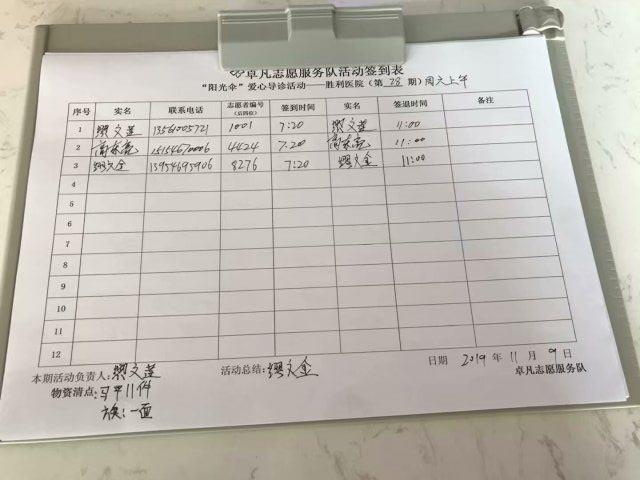 卓凡志愿服务队活动签到表
“阳光伞”爱心导诊活动——胜利医院（第 28 期）周六上午
序号 实名 联系电话 志愿者编号（后四位） 签到时间 实名 签退时间 备注
1 文莲 13561005721 1001 7:20 文莲 11:00
2 15154670006 4424 7:20 11:00
3 缪文金 13954695906 8276 7:20 缪文金 11:00
4
5
6
7
8
9
10
11
12
日期 2019 年 11 月 9 日
本期活动负责人: 文莲 活动总结: 缪文金 卓凡志愿服务队
物资清点: 马甲11件
旗: 一面